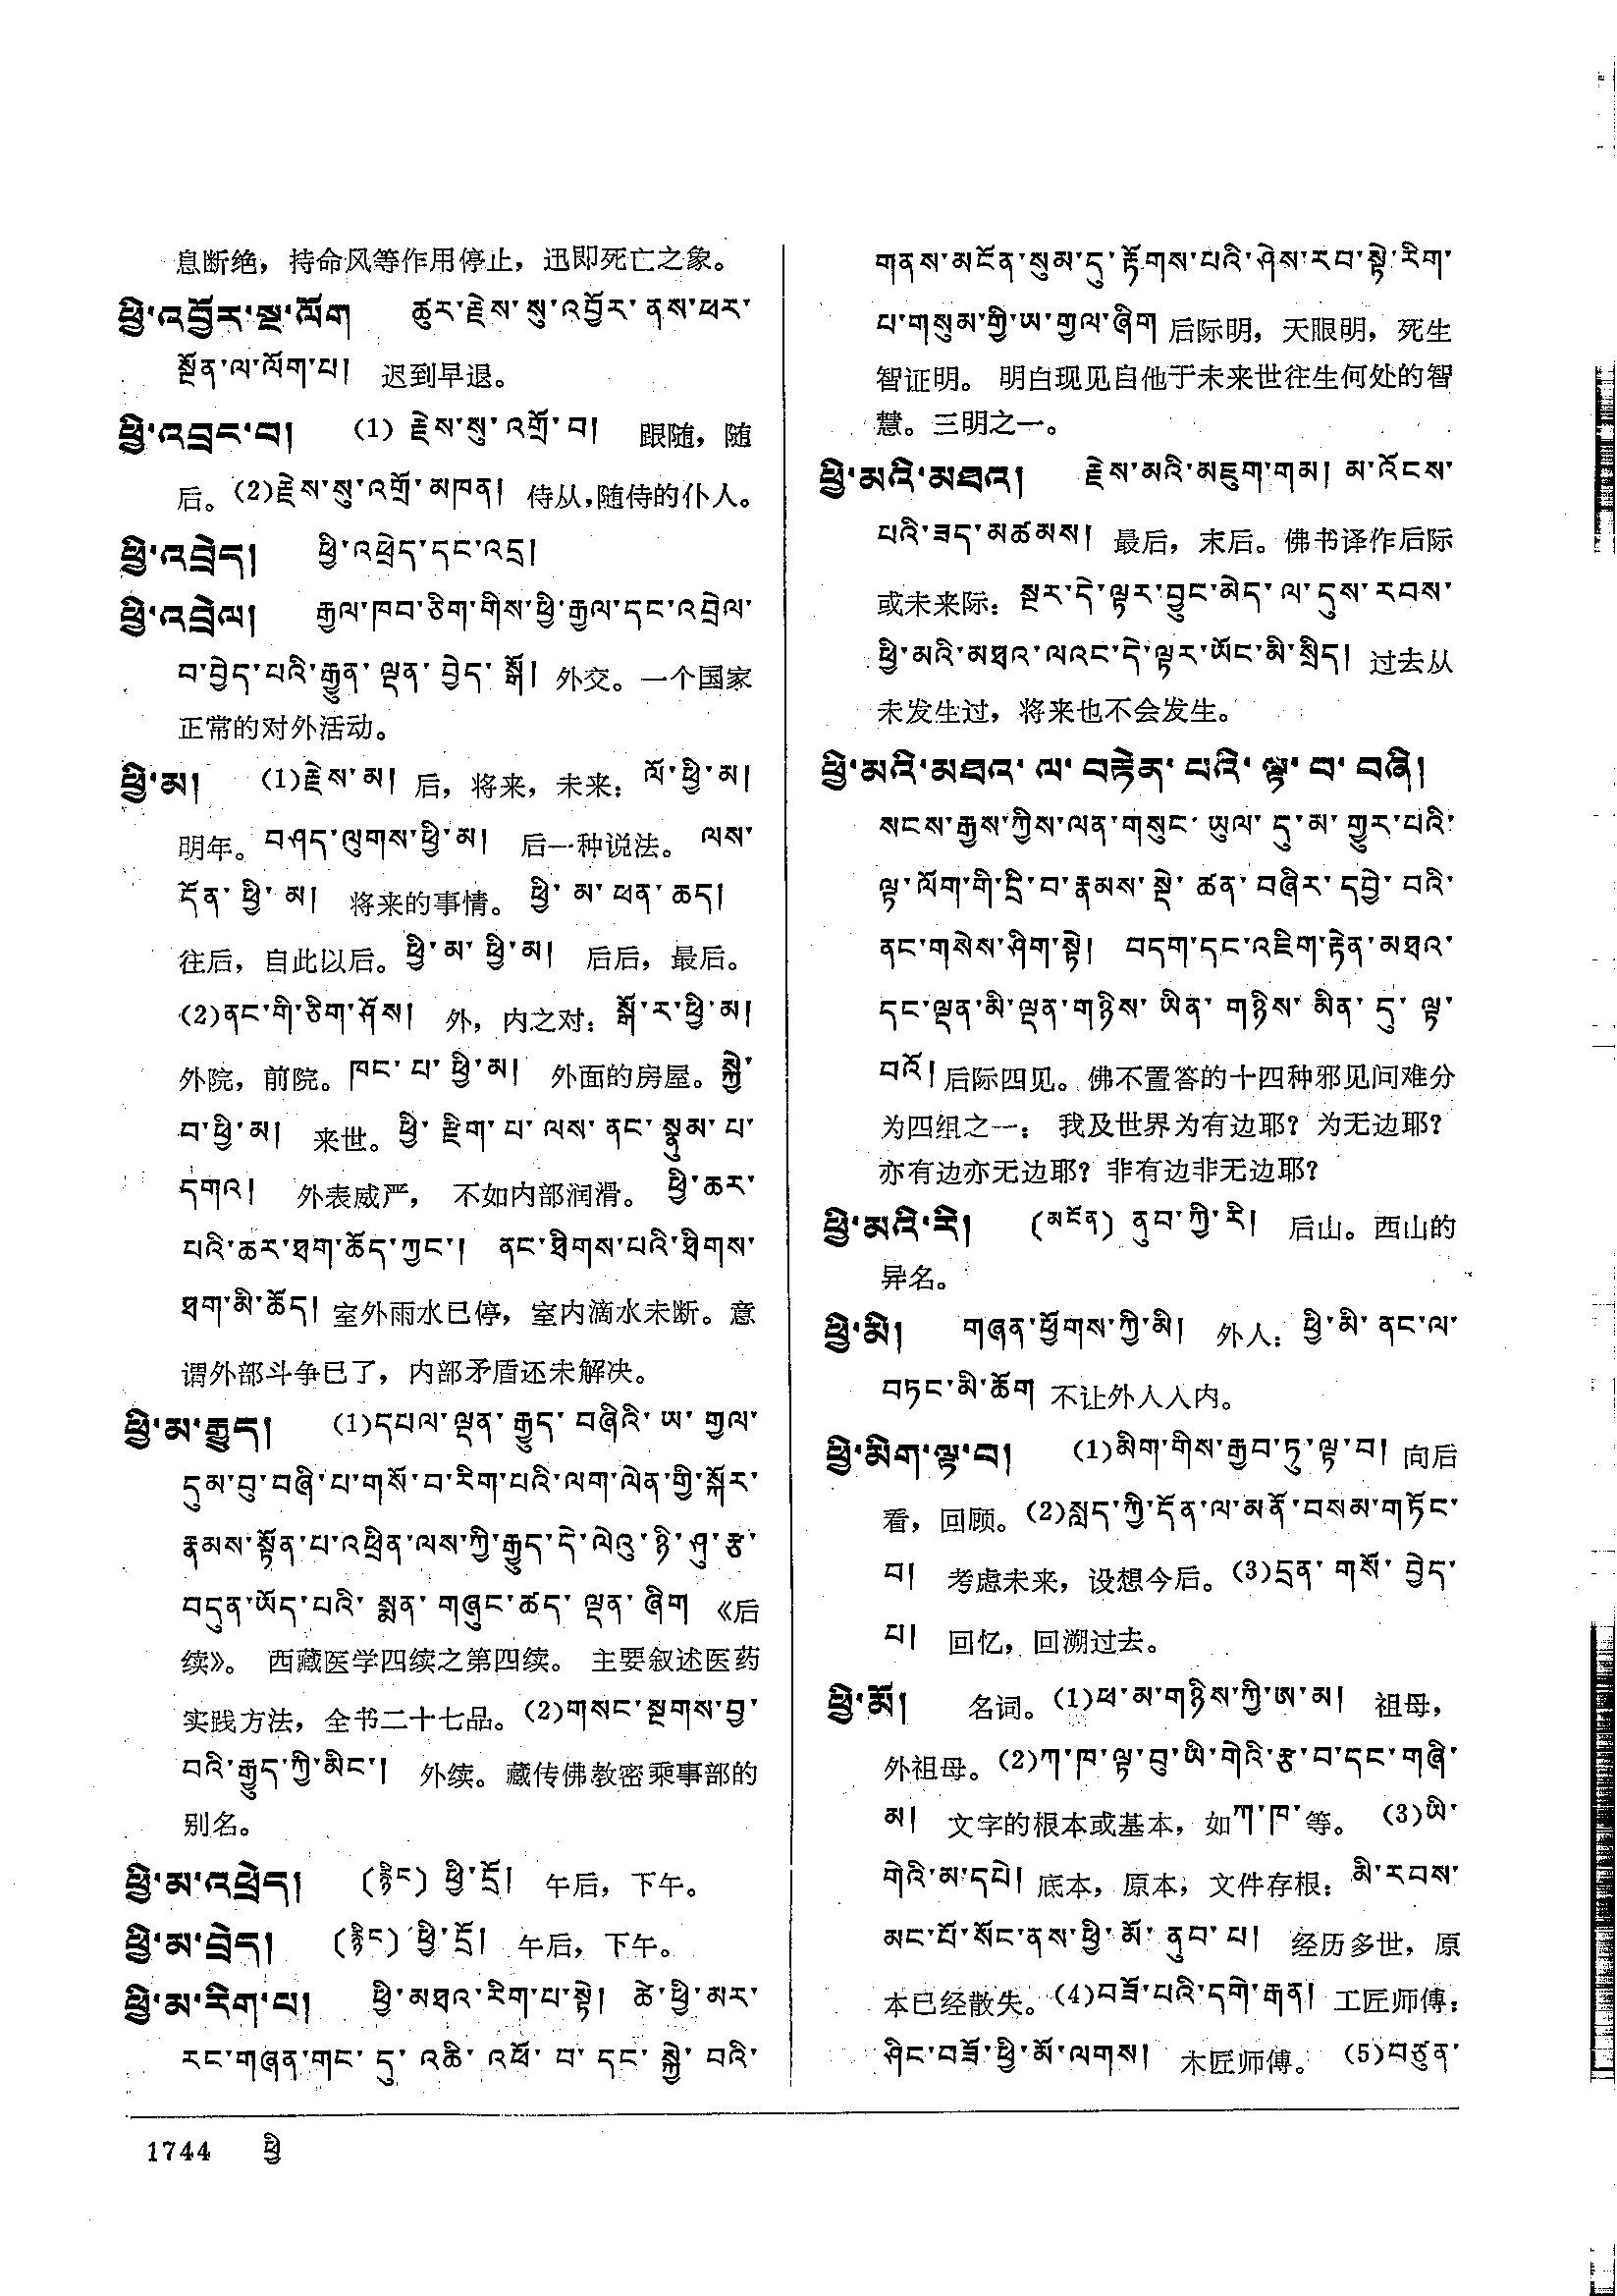 息断绝，持命风等作用停止，迅即死亡之象。
ཕྱི་འབྱོར་སྔ་ལོག ཚུར་རྗེས་སུ་འབྱོར་ནས་ཕར་
སྔོན་ལ་ལོག་པ། 迟到早退。
ཕྱི་འབྲང་བ། (1) རྗེས་སུ་འགྲོ་བ། 跟随，随
后。(2)རྗེས་སུ་འགྲོ་མཁན། 侍从，随侍的仆人。
ཕྱི་འབྲེད། ཕྱི་འཕྲེད་དང་འདྲ།
ཕྱི་འབྲེལ། རྒྱལ་ཁབ་ཅིག་གིས་ཕྱི་རྒྱལ་དང་འབྲེལ་
བ་བྱེད་པའི་རྒྱུན་ལྡན་བྱེད་སྒོ། 外交。一个国家
正常的对外活动。
ཕྱི་མ། (1)རྗེས་མ། 后，将来，未来：ལོ་ཕྱི་མ།
明年。བཤད་ལུགས་ཕྱི་མ། 后一种说法。ལས་
དོན་ཕྱི་མ། 将来的事情。ཕྱི་མ་ཕན་ཆད།
往后，自此以后。ཕྱི་མ་ཕྱི་མ། 后后，最后。
(2)ནང་གི་ཅིག་ཤོས། 外，内之对：སྒོ་ར་ཕྱི་མ།
外院，前院。ཁང་པ་ཕྱི་མ། 外面的房屋。སྐྱེ་
བ་ཕྱི་མ། 来世。ཕྱི་རྗིག་པ་ལས་ནང་སྣུམ་པ་
དགའ། 外表威严，不如内部润滑。ཕྱི་ཆར་
པའི་ཆར་ཐག་ཆོད་ཀྱང་། ནང་ཐིགས་པའི་ཐིགས་
ཐག་མི་ཆོད། 室外雨水已停，室内滴水未断。意
谓外部斗争已了，内部矛盾还未解决。
ཕྱི་མ་རྒྱུད། (1)དཔལ་ལྡན་རྒྱུད་བཞིའི་ཨ་གྱལ་
དུམ་བུ་བཞི་པ་གསོ་བ་རིག་པའི་ལག་ལེན་གྱི་སྐོར་
རྣམས་སྟོན་པ་འཕྲིན་ལས་ཀྱི་རྒྱུད་དེ་ལེའུ་ཉི་ཤུ་རྩ་
བདུན་ཡོད་པའི་སྨན་གཞུང་ཚད་ལྡན་ཞིག 《后
续》。西藏医学四续之第四续。主要叙述医药
实践方法，全书二十七品。(2)གསང་སྔགས་བྱ་
བའི་རྒྱུད་ཀྱི་མིང་། 外续。藏传佛教密乘事部的
别名。
ཕྱི་མ་འཕྲེད། (རྙིང) ཕྱི་དྲོ། 午后，下午。
ཕྱི་མ་བྲེད། (རྙིང) ཕྱི་དྲོ། 午后，下午。
ཕྱི་མ་རིག་པ། ཕྱི་མཐའ་རིག་པ་སྟེ། ཚེ་ཕྱི་མར་
རང་གཞན་གང་དུ་འཆི་འཕོ་བ་དང་སྐྱེ་བའི་
གནས་མངོན་སུམ་དུ་རྟོགས་པའི་ཤེས་རབ་སྟེ་རིག་
པ་གསུམ་གྱི་ཨ་གྱལ་ཞིག 后际明，天眼明，死生
智证明。明白现见自他于未来世往生何处的智
慧。三明之一。
ཕྱི་མའི་མཐའ། རྗེས་མའི་མཇུག་གམ། མ་འོངས་
པའི་ཟད་མཚམས། 最后，末后。佛书译作后际
或未来际：སྔར་དེ་ལྟར་བྱུང་མེད་ལ་དུས་རབས་
ཕྱི་མའི་མཐའ་ལའང་དེ་ལྟར་ཡོང་མི་སྲིད། 过去从
未发生过，将来也不会发生。
ཕྱི་མའི་མཐའ་ལ་བརྟེན་པའི་ལྟ་བ་བཞི།
སངས་རྒྱས་ཀྱིས་ལན་གསུང་ཡུལ་དུ་མ་གྱུར་པའི་
ལྟ་ལོག་གི་དྲི་བ་རྣམས་སྡེ་ཚན་བཞིར་དབྱེ་བའི་
ནང་གསེས་ཤིག་སྟེ། བདག་དང་འཇིག་རྟེན་མཐའ་
དང་ལྡན་མི་ལྡན་གཉིས་ཡིན་གཉིས་མིན་དུ་ལྟ་
བའོ། 后际四见。佛不置答的十四种邪见问难分
为四组之一：我及世界为有边耶？为无边耶？
亦有边亦无边耶？非有边非无边耶？
ཕྱི་མའི་རི། (མངོན) ནུབ་ཀྱི་རི། 后山。西山的
异名。
ཕྱི་མི། གཞན་ཕྱོགས་ཀྱི་མི། 外人：ཕྱི་མི་ནང་ལ་
བཏང་མི་ཆོག 不让外人入内。
ཕྱི་མིག་ལྟ་བ། (1)མིག་གིས་རྒྱབ་ཏུ་ལྟ་བ། 向后
看，回顾。(2)སླད་ཀྱི་དོན་ལ་མནོ་བསམ་གཏོང་
བ། 考虑未来，设想今后。(3)དྲན་གསོ་བྱེད་
པ། 回忆，回溯过去。
ཕྱི་མོ། 名词。(1)ཕ་མ་གཉིས་ཀྱི་ཨ་མ། 祖母，
外祖母。(2)ཀ་ཁ་ལྟ་བུ་ཡི་གེའི་རྩ་བ་དང་གཞི་
མ། 文字的根本或基本，如ཀ་ཁ་等。 (3)ཡི་
གེའི་མ་དཔེ། 底本，原本，文件存根：མི་རབས་
མང་པོ་སོང་ནས་ཕྱི་མོ་ནུབ་པ། 经历多世，原
本已经散失。(4)བཟོ་པའི་དགེ་རྒན། 工匠师傅：
ཤིང་བཟོ་ཕྱི་མོ་ལགས། 木匠师傅。 (5)བཙུན་
1744 ཕྱི